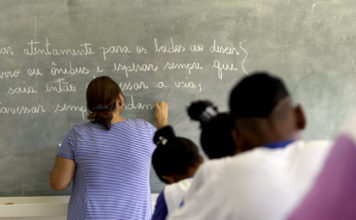 atentamente para os lados ao descer
ou ônibus e esperar sempre que
saia então ssar a via,
avessar sempre da